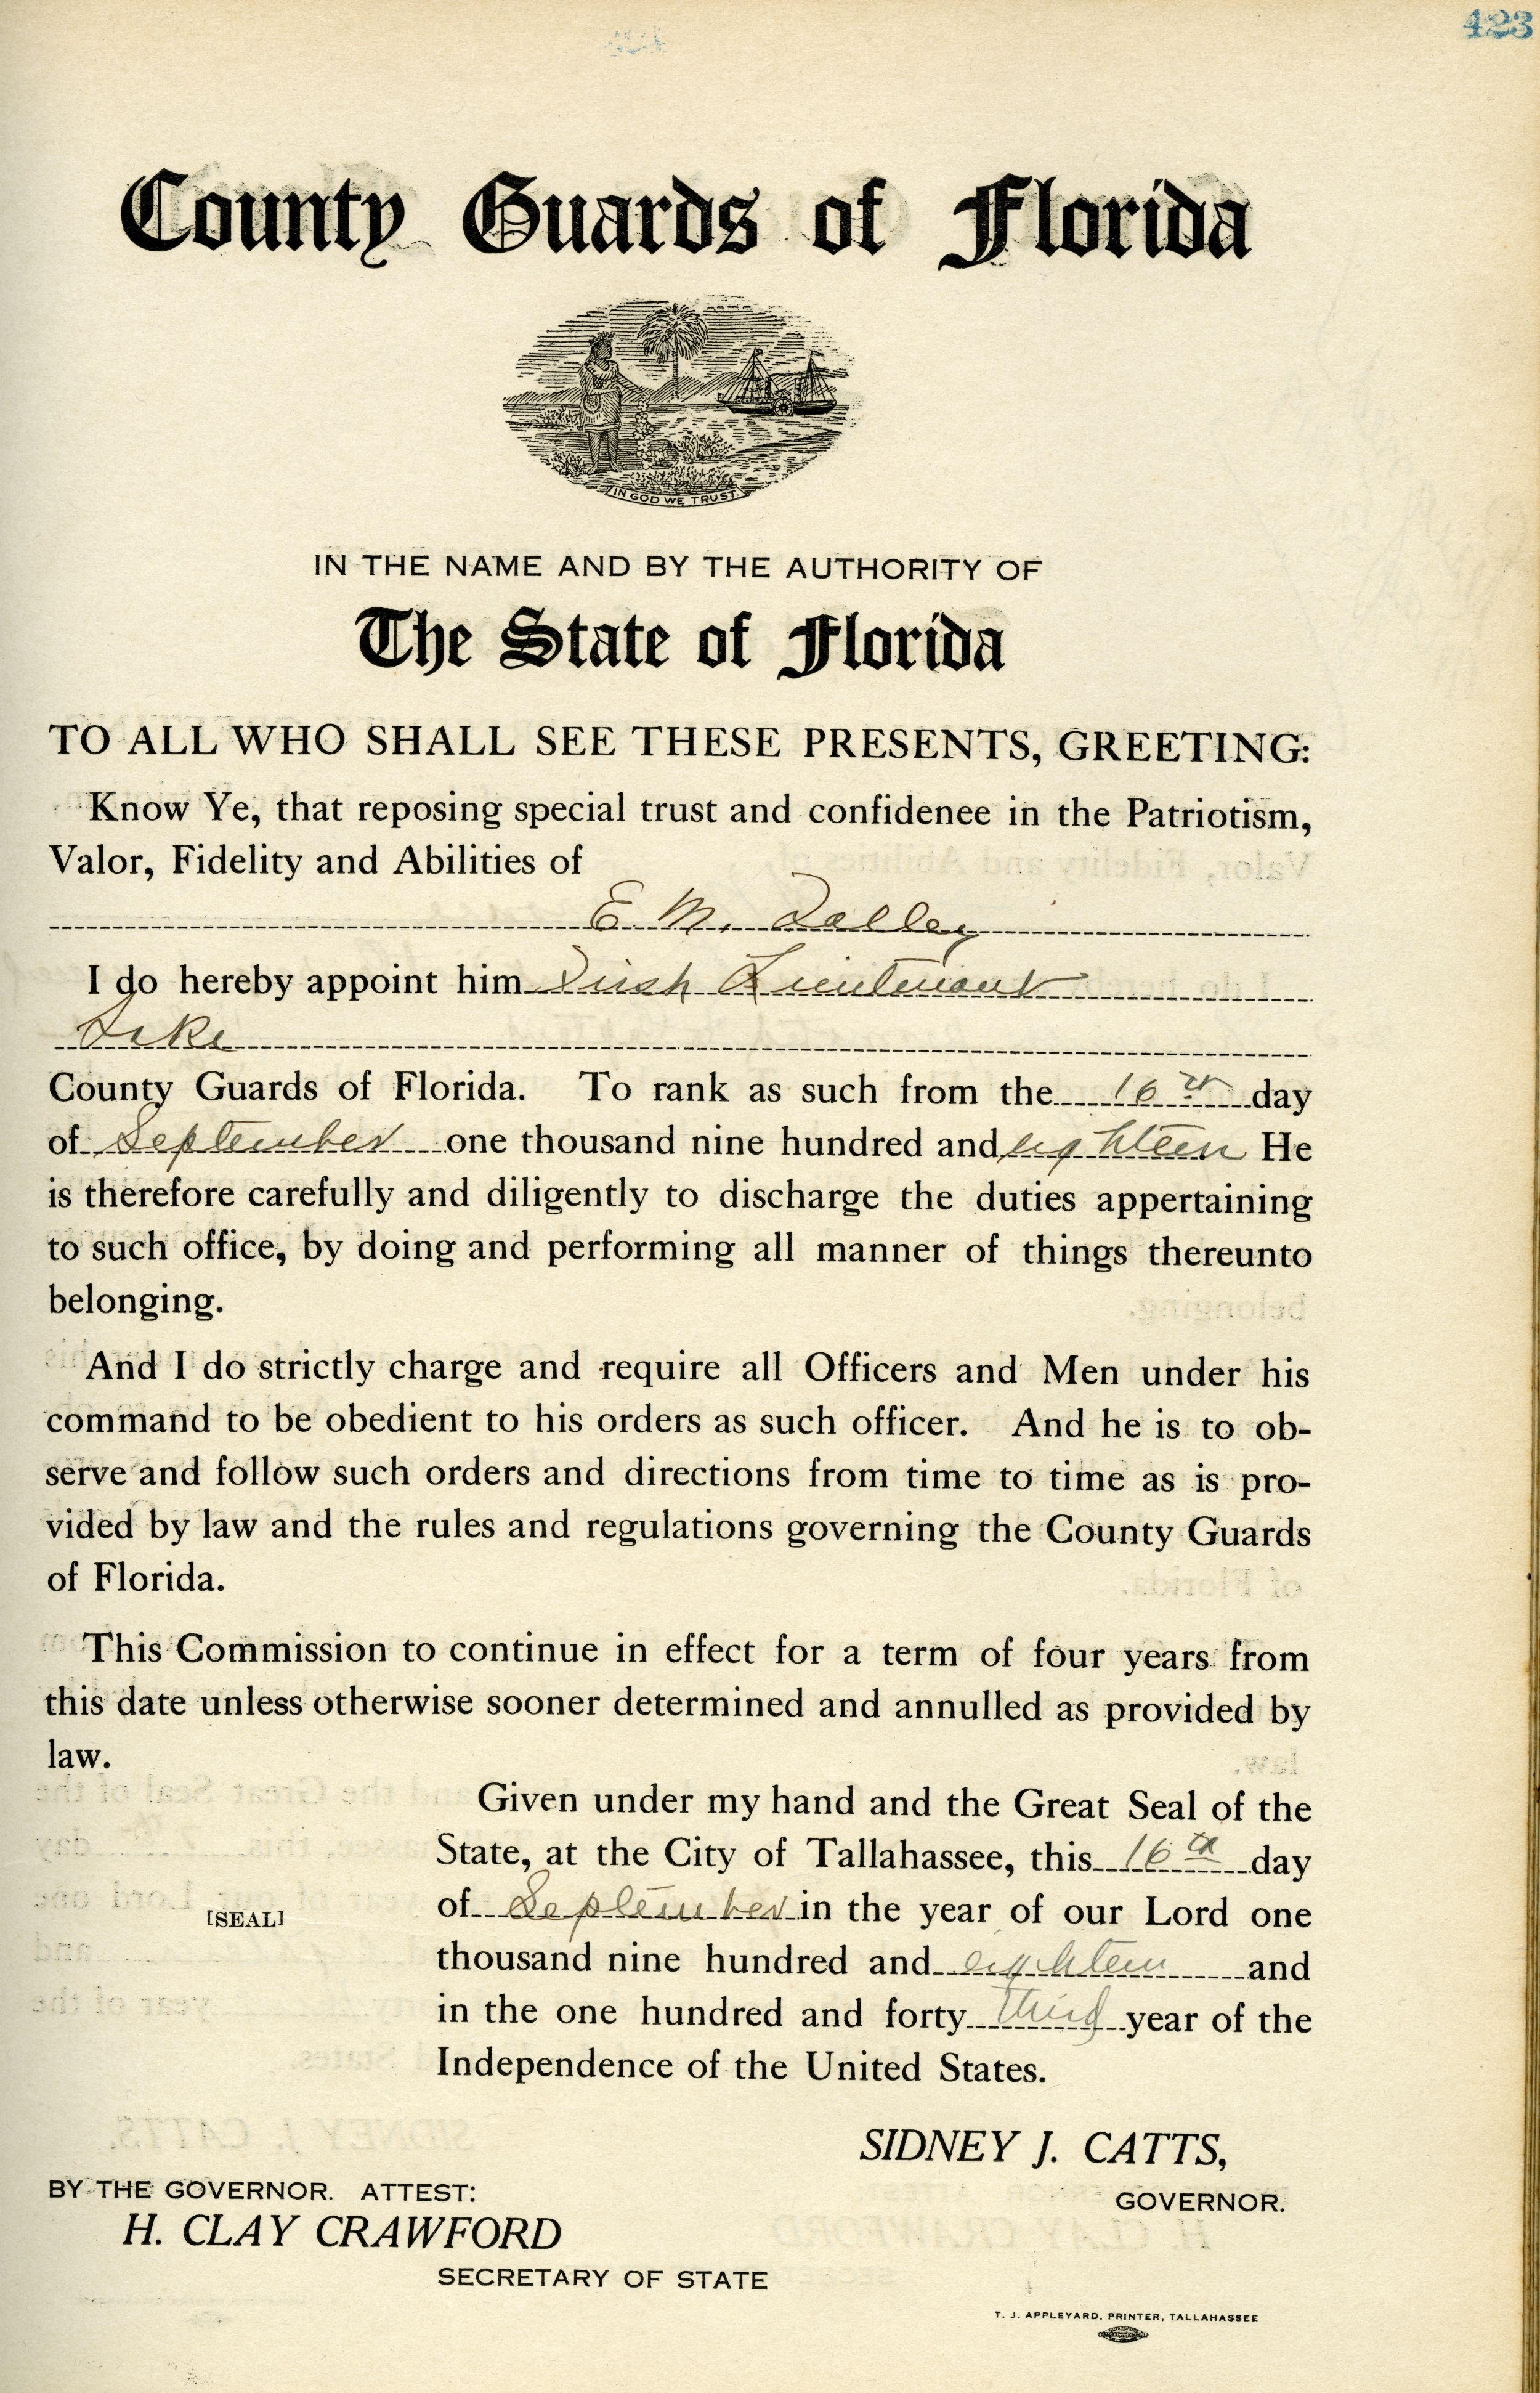 423
County Guards of Florida
IN GOD WE TRUST.
IN THE NAME AND BY THE AUTHORITY OF
The State of Florida
TO ALL WHO SHALL SEE THESE PRESENTS, GREETING:
Know Ye, that reposing special trust and confidenee in the Patriotism,
Valor, Fidelity and Abilities of
E. M.
I do hereby appoint him First Lieutenant
Lake
County Guards of Florida. To rank as such from the 16th day
of September one thousand nine hundred and eighteen He
is therefore carefully and diligently to discharge the duties appertaining
to such office, by doing and performing all manner of things thereunto
belonging.
And I do strictly charge and require all Officers and Men under his
command to be obedient to his orders as such officer. And he is to ob-
serve and follow such orders and directions from time to time as is pro-
vided by law and the rules and regulations governing the County Guards
of Florida.
This Commission to continue in effect for a term of four years from
this date unless otherwise sooner determined and annulled as provided by
law.
Given under my hand and the Great Seal of the
State, at the City of Tallahassee, this 16th day
of September in the year of our Lord one
[SEAL]
thousand nine hundred and eighteen and
in the one hundred and forty third year of the
Independence of the United States.
SIDNEY J. CATTS,
GOVERNOR.
BY THE GOVERNOR. ATTEST:
H. CLAY CRAWFORD
SECRETARY OF STATE
T. J. APPLEYARD, PRINTER, TALLAHASSEE